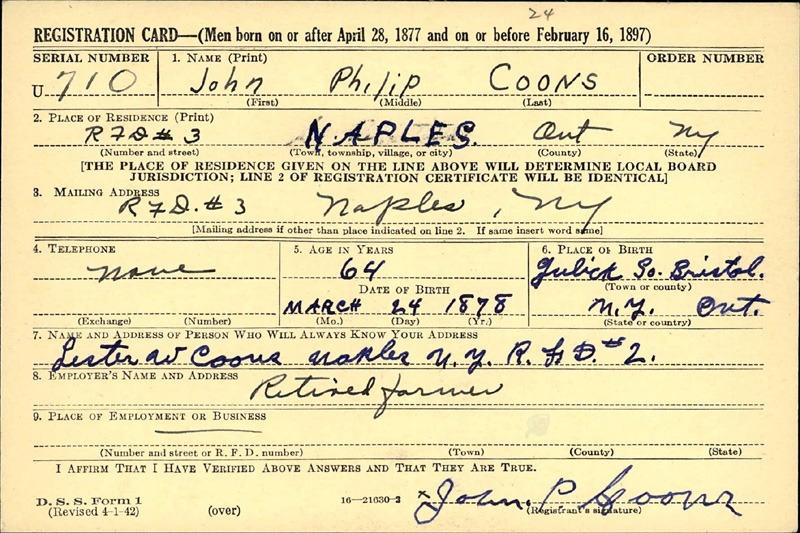 24
REGISTRATION CARD—(Men born on or after April 28, 1877 and on or before February 16, 1897)
SERIAL NUMBER 1. NAME (Print) ORDER NUMBER
U 710 John Philip COONS
(First) (Middle) (Last)
2. PLACE OF RESIDENCE (Print)
RFD # 3 NAPLES. Ont NY
(Number and street) (Town, township, village, or city) (County) (State)
[THE PLACE OF RESIDENCE GIVEN ON THE LINE ABOVE WILL DETERMINE LOCAL BOARD
JURISDICTION; LINE 2 OF REGISTRATION CERTIFICATE WILL BE IDENTICAL]
3. MAILING ADDRESS
RFD. # 3 Naples, NY
[Mailing address if other than place indicated on line 2. If same insert word same]
4. TELEPHONE 5. AGE IN YEARS 6. PLACE OF BIRTH
none 64 Gulick So. Bristol.
DATE OF BIRTH (Town or county)
MARCH 24 1878 N.Y. Ont.
(Exchange) (Number) (Mo.) (Day) (Yr.) (State or country)
7. NAME AND ADDRESS OF PERSON WHO WILL ALWAYS KNOW YOUR ADDRESS
Lester W Coons Naples N.Y. R.F.D.# 2.
8. EMPLOYER'S NAME AND ADDRESS
Retired farmer
9. PLACE OF EMPLOYMENT OR BUSINESS
(Number and street or R. F. D. number) (Town) (County) (State)
I AFFIRM THAT I HAVE VERIFIED ABOVE ANSWERS AND THAT THEY ARE TRUE.
D. S. S. Form 1 16—21630-2 x John. P. Coons
(Revised 4-1-42) (over) (Registrant's signature)